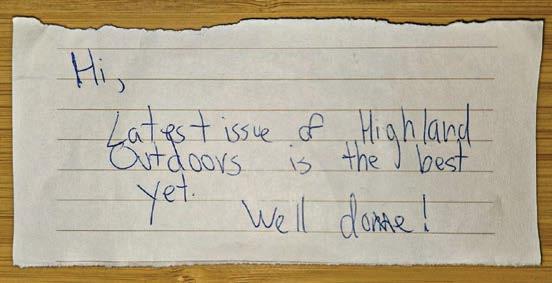 Hi,
Latest issue of Highland
Outdoors is the best
yet.
Well done!